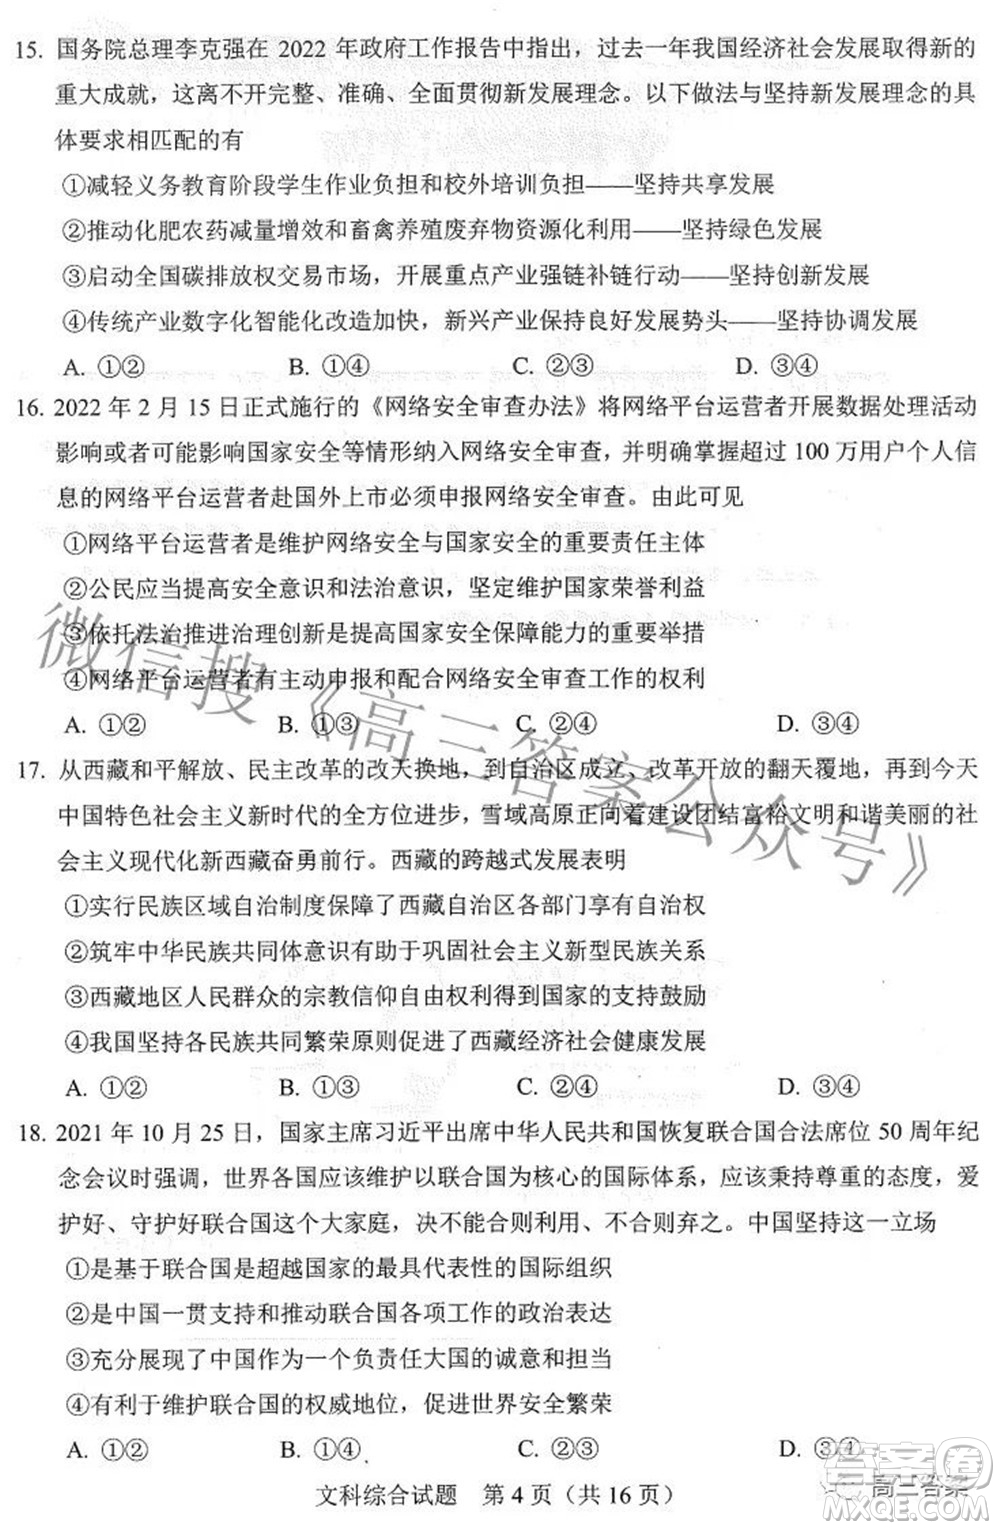 15. 国务院总理李克强在 2022 年政府工作报告中指出，过去一年我国经济社会发展取得新的
重大成就，这离不开完整、准确、全面贯彻新发展理念。以下做法与坚持新发展理念的具
体要求相匹配的有
①减轻义务教育阶段学生作业负担和校外培训负担——坚持共享发展
②推动化肥农药减量增效和畜禽养殖废弃物资源化利用——坚持绿色发展
③启动全国碳排放权交易市场，开展重点产业强链补链行动——坚持创新发展
④传统产业数字化智能化改造加快，新兴产业保持良好发展势头——坚持协调发展
A. ①② B. ①④ C. ②③ D. ③④
16. 2022 年 2 月 15 日正式施行的《网络安全审查办法》将网络平台运营者开展数据处理活动
影响或者可能影响国家安全等情形纳入网络安全审查，并明确掌握超过 100 万用户个人信
息的网络平台运营者赴国外上市必须申报网络安全审查。由此可见
①网络平台运营者是维护网络安全与国家安全的重要责任主体
②公民应当提高安全意识和法治意识，坚定维护国家荣誉利益
③依托法治推进治理创新是提高国家安全保障能力的重要举措
④网络平台运营者有主动申报和配合网络安全审查工作的权利
A. ①② B. ①③ C. ②④ D. ③④
17. 从西藏和平解放、民主改革的改天换地，到自治区成立、改革开放的翻天覆地，再到今天
中国特色社会主义新时代的全方位进步，雪域高原正向着建设团结富裕文明和谐美丽的社
会主义现代化新西藏奋勇前行。西藏的跨越式发展表明
①实行民族区域自治制度保障了西藏自治区各部门享有自治权
②筑牢中华民族共同体意识有助于巩固社会主义新型民族关系
③西藏地区人民群众的宗教信仰自由权利得到国家的支持鼓励
④我国坚持各民族共同繁荣原则促进了西藏经济社会健康发展
A. ①② B. ①③ C. ②④ D. ③④
18. 2021 年 10 月 25 日，国家主席习近平出席中华人民共和国恢复联合国合法席位 50 周年纪
念会议时强调，世界各国应该维护以联合国为核心的国际体系，应该秉持尊重的态度，爱
护好、守护好联合国这个大家庭，决不能合则利用、不合则弃之。中国坚持这一立场
①是基于联合国是超越国家的最具代表性的国际组织
②是中国一贯支持和推动联合国各项工作的政治表达
③充分展现了中国作为一个负责任大国的诚意和担当
④有利于维护联合国的权威地位，促进世界安全繁荣
A. ①② B. ①④ C. ②③ D. ③④
文科综合试题 第 4 页（共 16 页）
微信搜《高三答案公众号》
高三答案
答案圈
MXQE.COM